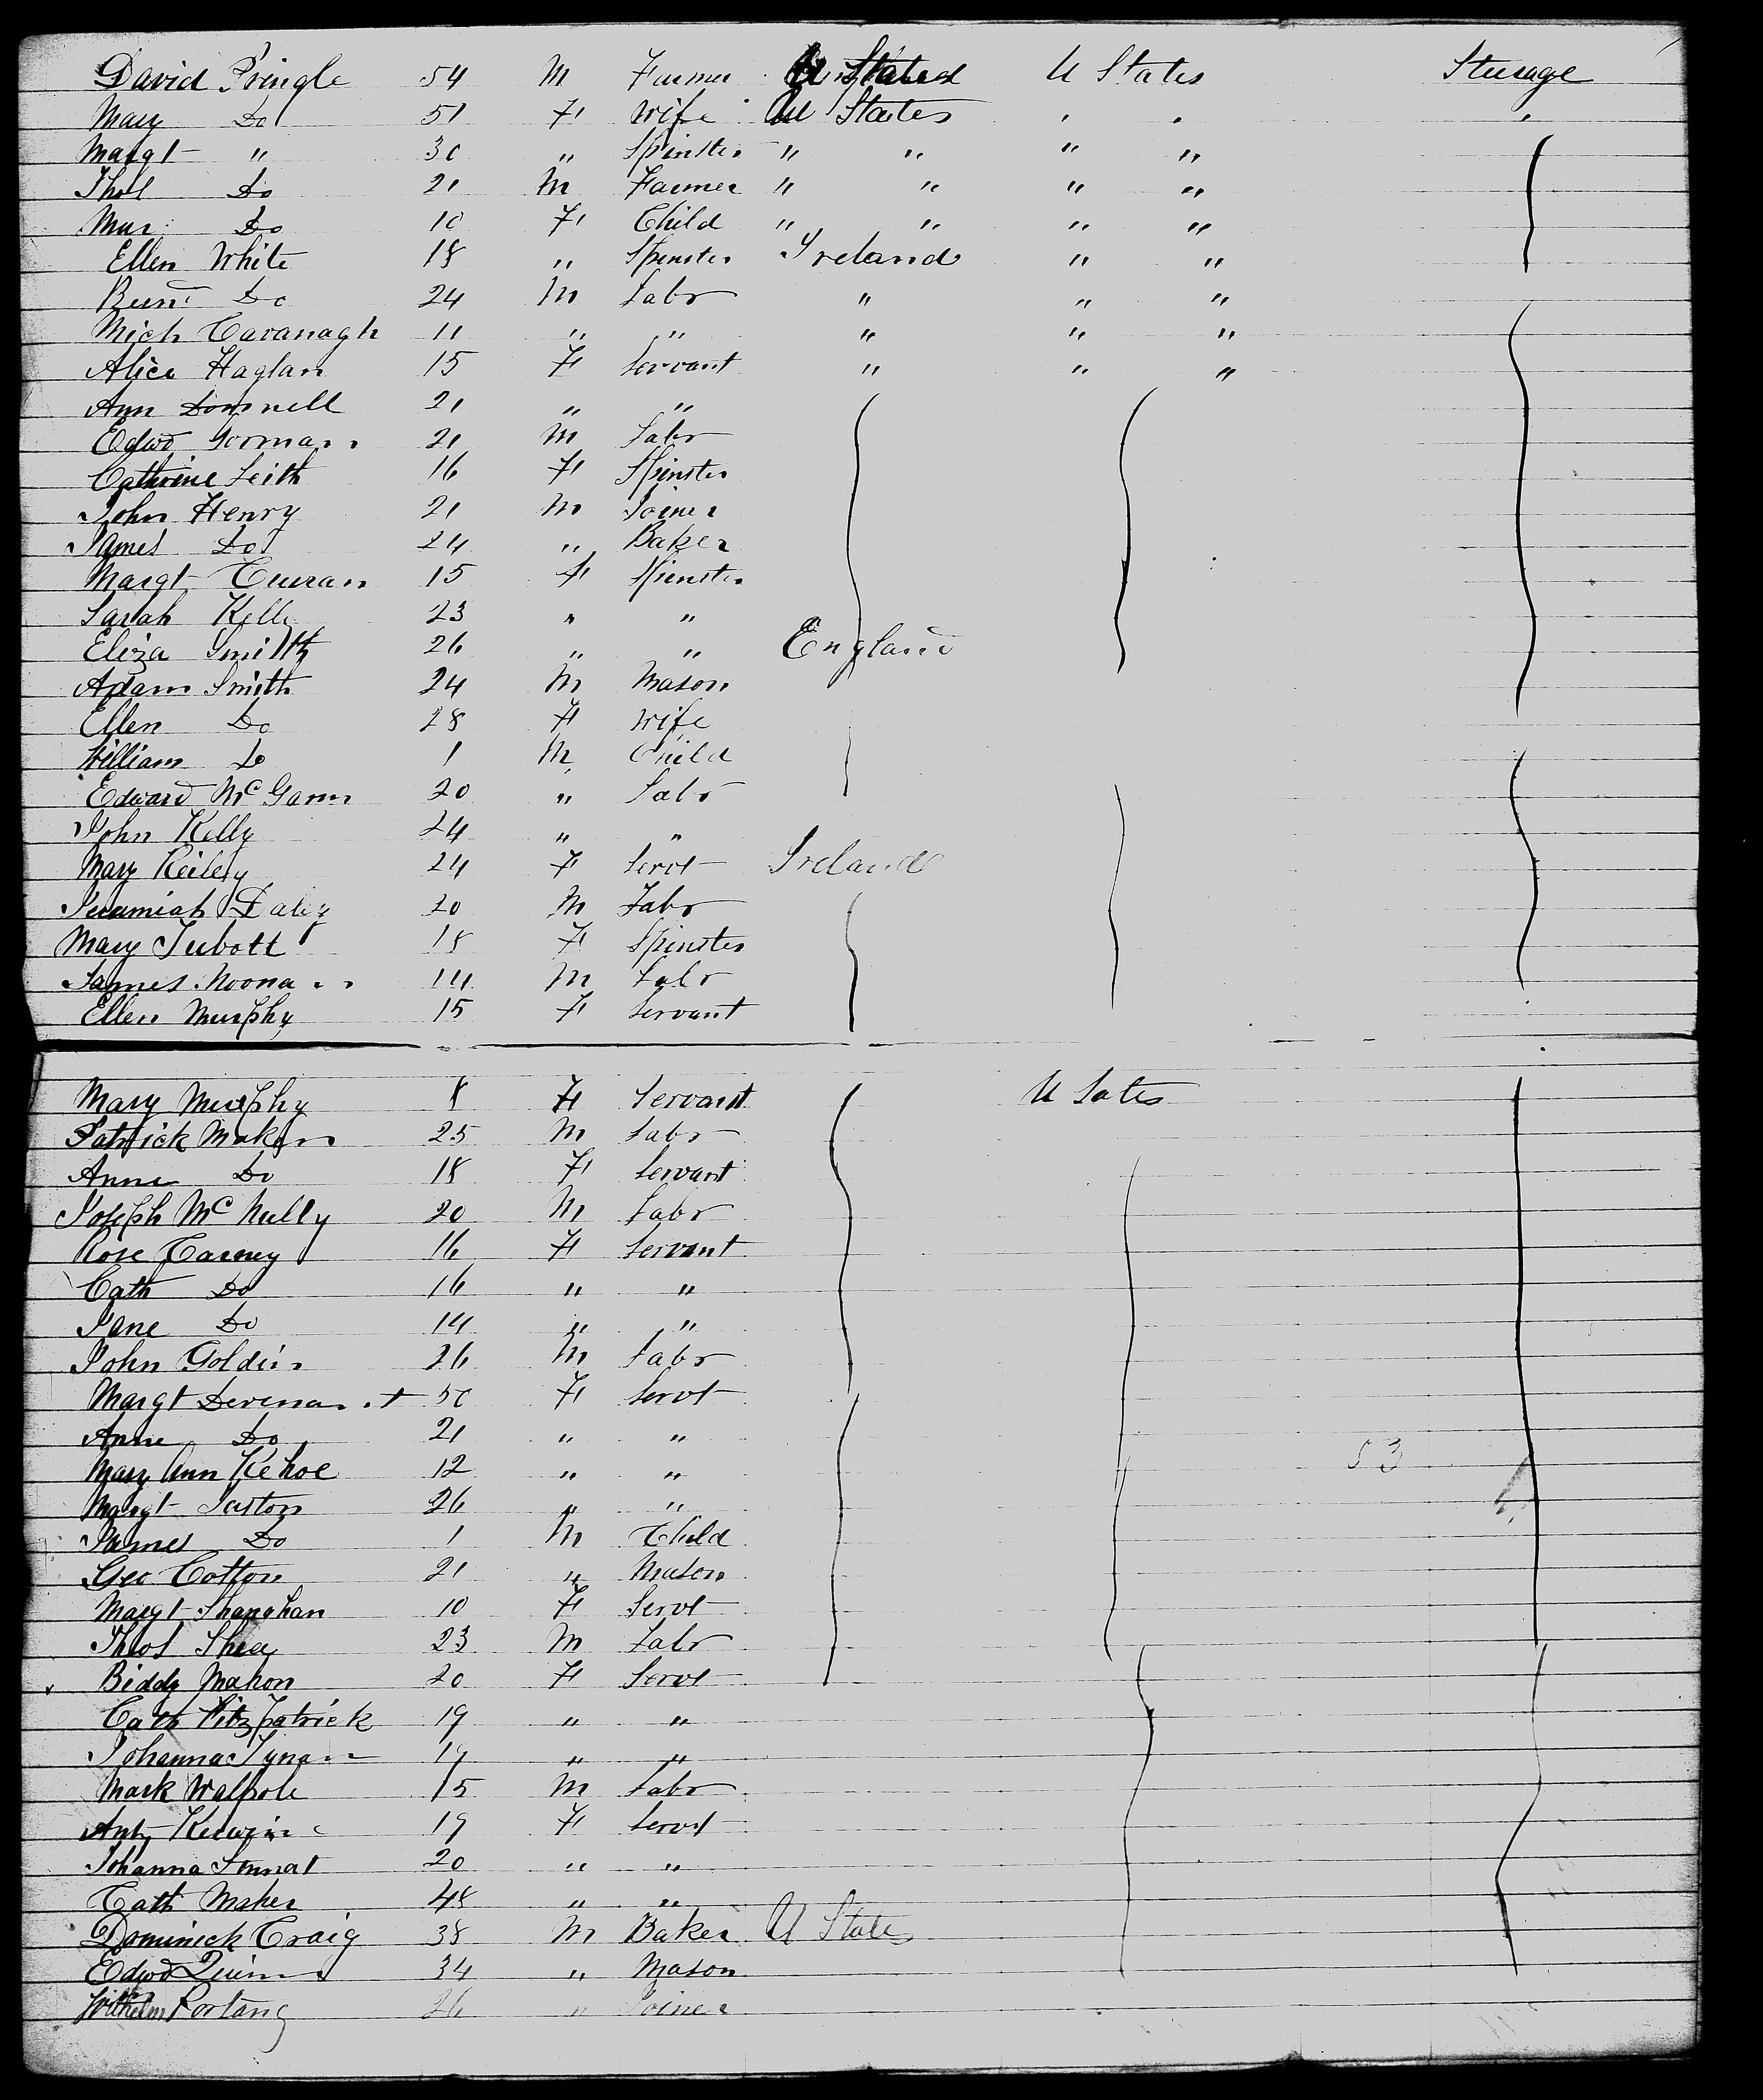 David Pringle 54 M Farmer U States U States Steerage
Mary Do 51 F Wife U States " " "
Margt " 30 " Spinster " " " "
Thos Do 21 M Farmer " " " "
Mar: Do 10 F Child " " " "
Ellen White 18 " Spinster Ireland " "
Do 24 M Labr " " "
Mich Cavanagh 11 " " " " "
Alice Haglan 15 F Servant " " "
Ann Donnell 21 " "
Edwd Gorman 21 M Labr
Cathrine Leith 16 F Spinster
John Henry 21 M Joiner
James Do 24 " Baker
Margt Curran 15 F Spinster
Sarah Kelly 23 " "
Eliza Smith 26 " " England
Adam Smith 24 M Mason
Ellen Do 28 F Wife
William Do 1 M Child
Edward McGann 20 " Labr
John Kelly 24 " "
Mary Reilely 24 F Servt Ireland
Jeremiah Daley 20 M Labr
Mary Tubott 18 F Spinster
James Noonan 14 M Labr
Ellen Murphy 15 F Servant
Mary Murphy 8 F Servant U Sates
Patrick Maken 25 M Labr
Anne Do 18 F Servant
Joseph McNully 20 M Labr
Rose Carney 16 F Servant
Cath Do 16 " "
Jane Do 14 " "
John Goldin 26 M Labr
Margt 50 F Servt
Anne Do 21 " "
Mary Ann Kehoe 12 " " 53
Margt 26 " "
James Do 1 M Child
Geo Cotton 21 " Mason
Margt Shanahan 10 F Servt
Thos Shea 23 M Labr
Biddy Mahon 20 F Servt
Cath Fitzpatrick 19 " "
Johanna Tynan 19 " "
Mark Walpole 15 M Labr
Kerwin 19 F Servt
Johanna Sinnat 20 " "
Cath Maher 48 " "
Dominick Craig 38 M Baker U States
Edwd Quinn 34 " Mason
Wilhelm Portang 26 " Joiner